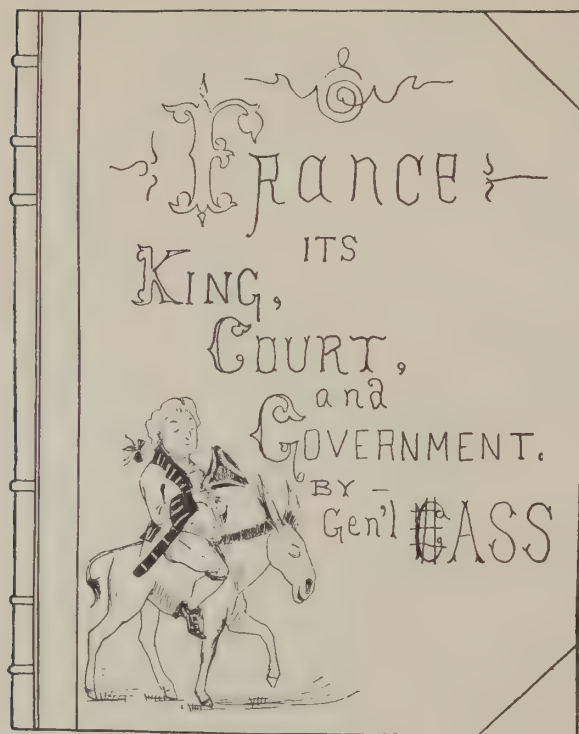 FRANCE
ITS
KING,
COURT,
and
GOVERNMENT.
BY –
Gen'l CASS